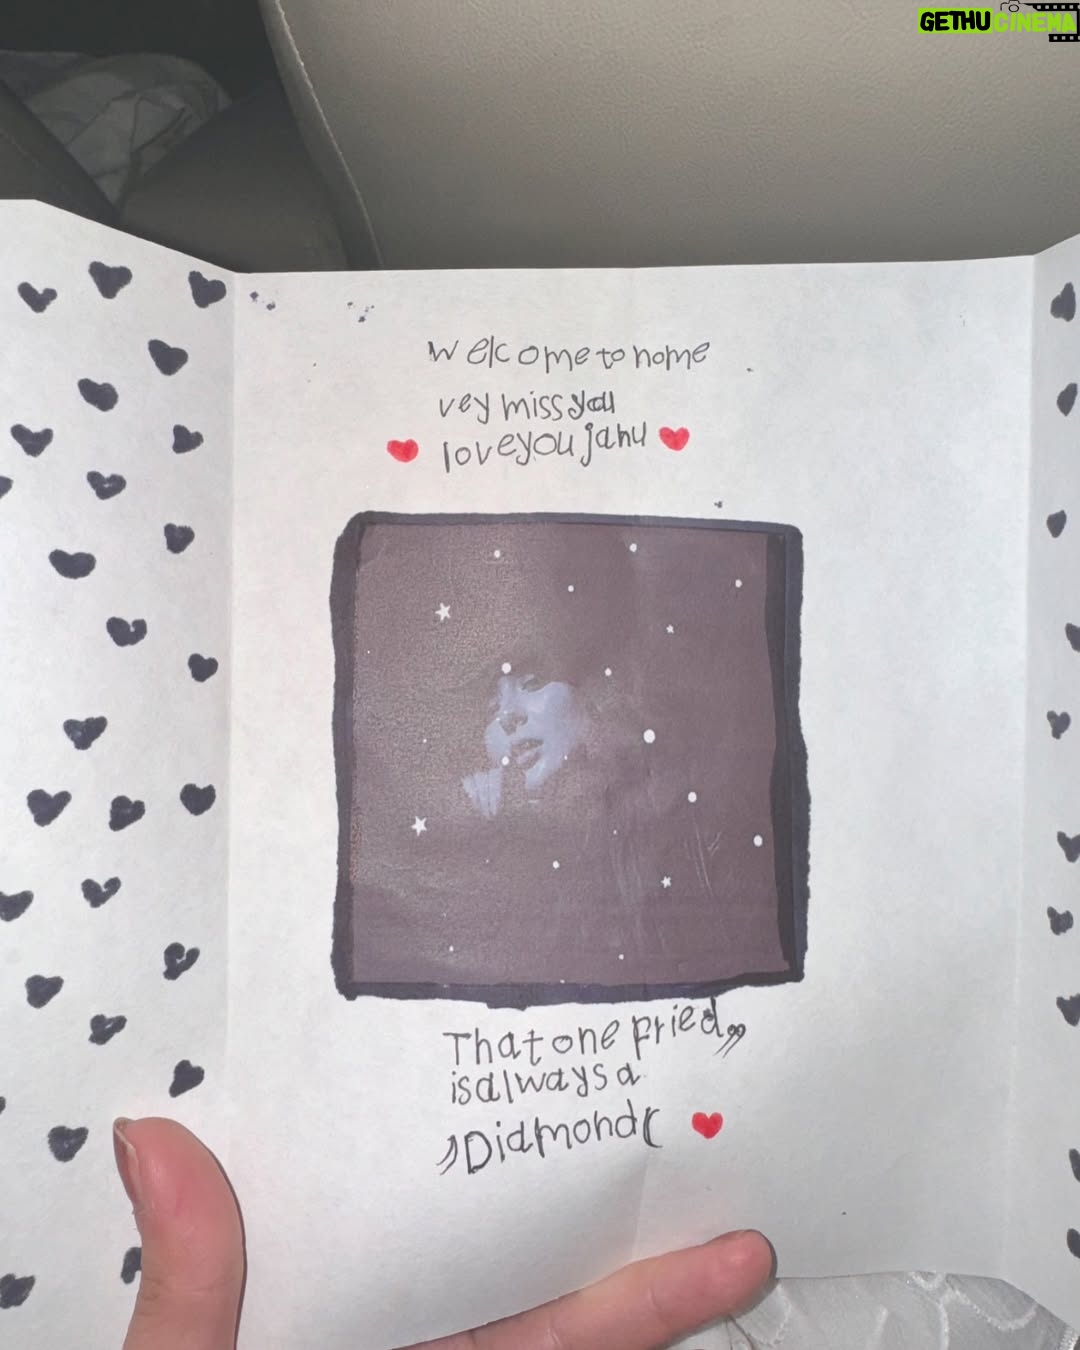 GETHU CINEMA
Welcome to home
vey miss you
love you janu
That one fried„
is always a
„Diamond(